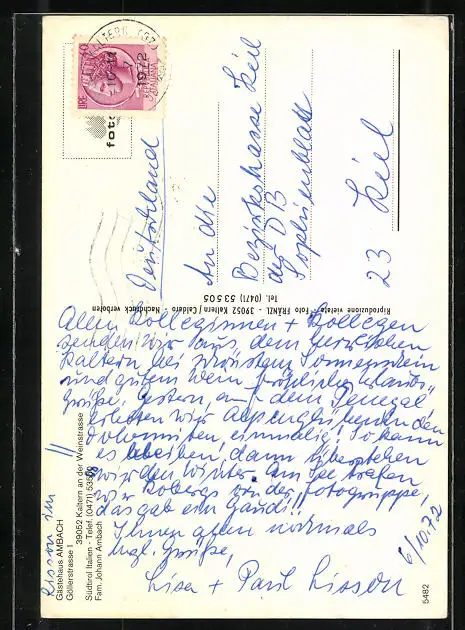 Allen Kolleginnen + Kollegen
senden wir aus dem herrlichen
Kaltern bei schönstem Sonnenschein
und gutem Wein fröhliche Urlaubs-
grüße. Gestern, auf dem Penegal
erlebten wir Alpenglühen in den
Dolomiten, einmalig! So kann
es bleiben, dann überstehen
wir den Winter. Am See trafen
wir Robergs von der "Fotogruppe",
das gab ein Gaudi!!
Ihnen allen nochmals
hzgl. Grüße,
Lisa + Paul Lisson
6/10.72
Deutschland
An die
Bezirkskasse Kiel
der DB
Sophienblatt
23 Kiel
Lisson im
Gästehaus AMBACH
Göllerstrasse 1
39052 Kaltern an der Weinstrasse
Südtirol Italien - Telef. (0471)
Fam. Johann Ambach
Riproduzione vietata - Foto FRÄNZL - 39052 Kaltern / Caldaro - Nachdruck verboten
Tel. (0471) 53505
foto
LIRE 40
1972
5482